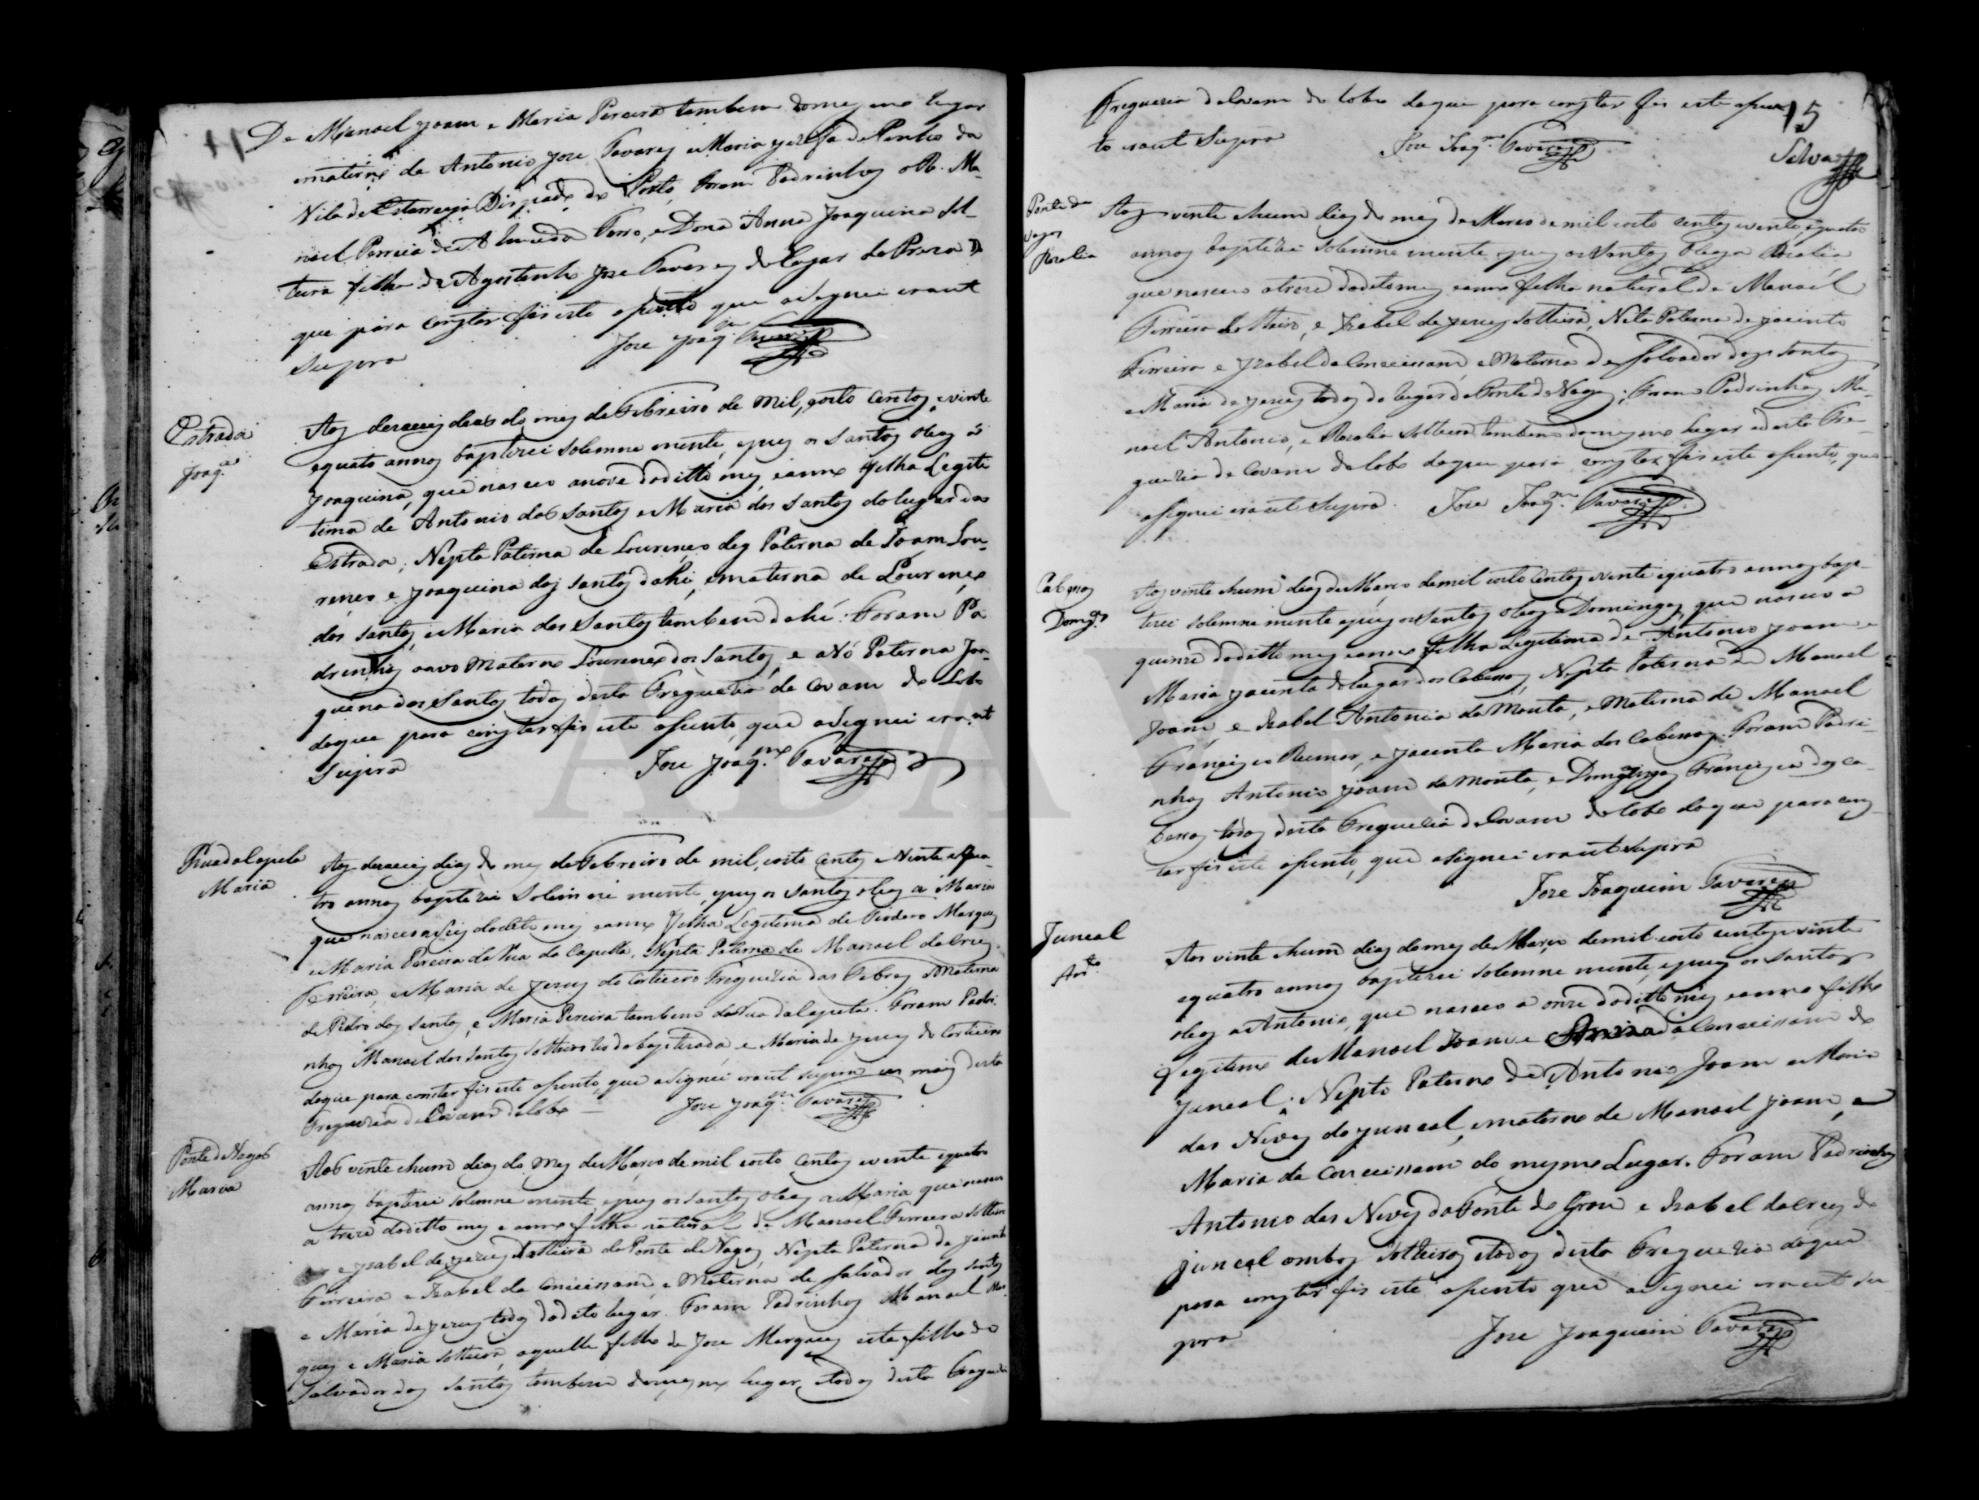 De Manoel Joam e Maria Pereira tambem do mesmo lugar
ematerna de Antonio Joze Tavares e Maria Jozefa de Pinho da
Vila de Estarreja Bispado do Porto, foram Padrinhos o R. Ma-
noel Perreia de Almeida e Dona Anna Joaquina Sol-
teira filha de Agostinho Joze Tavares do lugar da
que para constar fis este asento que asignei eraut
Supra Joze Joaqm. Tavares
Estrada
Joaqa.
Aos dezaseis dias do mes de Febreiro de mil, eoito Centos, evinte
equatro annos baptizei solemne mente, epus os Santos oleos a
Joaquina, que nasceo anove dodittto mes eanno filha Legiti
tima de Antonio dos Santos e Maria dos Santos do lugar da
Estrada; Nepta Paterna de Lourenço deg Paterna de Joam Lou-
renco e Joaquina dos Santos dahi, ematerna de Lourenço
dos Santos e Maria dos Santos tambem dahi. Foram Pa
drinhos oavo Materno Lourenco dos Santos, e aVó Paterna Joa-
quina dos Santos todos desta Freguezia de Covam do Lobo
doque para constar fis este asento, que asignei eraut
Supra Joze Joaqm. Tavares
Rua da Capela
Maria
Aos dezaseis dias do mes de Febreiro de mil, eoito Centos e Vinte equa-
tro annos baptizei Solemne mente, epus os Santos oleos a Maria
que nasceo aseis dodito mes eanno filha Legitima de Marques
e Maria Pereira da Rua da Capella, Nepta Paterna de Manoel da Cruz
Ferreira, e Maria de Jezus do Corticeiro Freguezia das Febres ematerna
de Pedro dos Santos, e Maria Pereira tambem daRua daCapela. Foram Padri
nhos Manoel dos Santos Solteiro tio dobaptizada e Maria de Jezus do Corticeiro
doque para constar fis este asento, que asignei eraut supra mais desta
Freguezia de Covam do Lobo Joze Joaqm. Tavares
Ponte de Vagos
Maria
Aos vinte ehum dias do Mes de Março de mil eoito Centos evinte equatro
annos baptizei solemne mente epus os Santos oleos a Maria que nasceo
a treze doditto mes e anno filha natural de Manoel Ferreira Soltei
ro e Izabel de Jezus Solteira da Ponte de Vagos, Nepta Paterna de Jacinto
Ferreira e Izabel da Conceissam, e Materna de Salvador dos Santos
e Maria de Jezus todos dodito lugar. Foram Padrinhos Manoel Mar-
ques e Maria solteira, aquelle filho de Joze Marques esta filha do
Salvador dos Santos tambem domesmo lugar, etodos desta Freguezia
15
Freguezia deCovam do Lobo doque para constar fis este asen
to eraut Supra Joze Joaqm. Tavares
Silva
Ponte de
Vagos
Rozalia
Aos vinte ehum dias do mes de Marco demil eoito centos evinte equatro
annos baptizei Solemne mente, epus os Santos Oleos a Rozalia
que nasceo atreze doditomes eanno filha natural de Manoel
Ferreira solteiro, e Izabel de Jezus Solteira, Neta Paterna de Jacinto
Ferreira e Izabel da Conceissam, e Materna de Salvador dos Santos
e Maria de Jezus todos do lugar de Ponte de Vagos; Foram Padrinhos Ma-
noel Antonio, e Rozalia Solteira tambem domesmo lugar edesta Fre-
guezia de Covam do Lobo doque para constar fis este asento, que
asignei eraut Supra. Joze Joaqm. Tavares
Cabesos
Domgos.
Aos vinte ehum dias deMarço demil eoito Centos evinte equatro annos bap-
tizei solemne mente epus os Santos oleos a Domingos que nasceo a
quinze doditto mes eanno filho Legitimo de Antonio Joam e
Maria Jacinta do lugar dos Cabesos, Nepto Paterno de Manoel
Joam, e Izabel Antonia da Mouta, e Materna de Manoel
Francisco Rumor, e Jacinta Maria dos Cabesos: Foram Padri-
nhos Antonio Joam da Mouta, e Domingas Francisca dos Ca-
besos todos desta Freguezia deCovam do Lobo doque para cons
tar fis este asento, que asignei eraut Supra
Joze Joaquim Tavares
Juncal
Anto.
Aos vinte ehum dias domes de Março demil eoito centos evinte
equatro annos baptizei solemne mente, epus os Santos
oleos a Antonio, que nasceo a onze doditto mes eanno filho
Legitimo de Manoel Joam e Anna da Conceissam do
Juncal; Nepto Paterno de Antonio Joam e Maria
das Neves do Juncal, ematerno de Manoel Joam, e
Maria da Conceissam do mesmo Lugar. Foram Padrinhos
Antonio das Neves da Fonte do Grou e Izabel daCruz do
Juncal ambos Solteiros etodos desta Freguezia doque
para constar fis este asento que asignei eraut su
pra Joze Joaquim Tavares